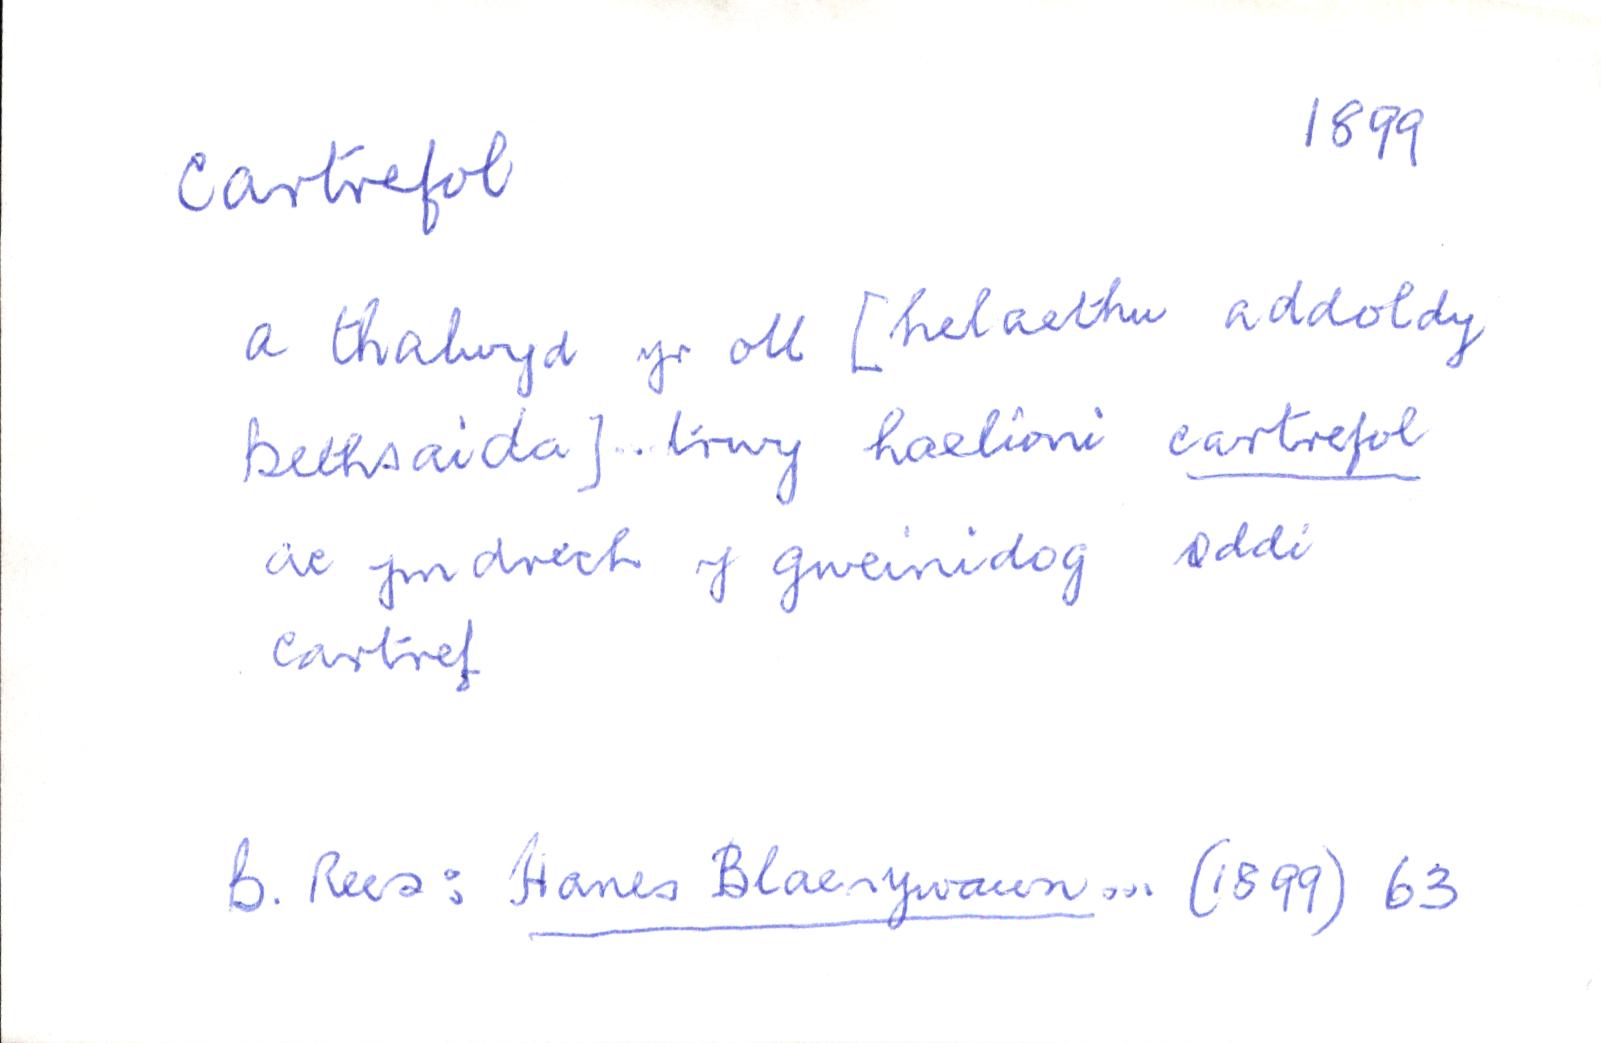 1899
cartrefol
a thalwyd yr oll [helaethu addoldy
Bethsaida]...trwy haelioni cartrefol
ac ymdrech y gweinidog oddi
cartref
B. Rees: Hanes Blaenywaun... (1899) 63